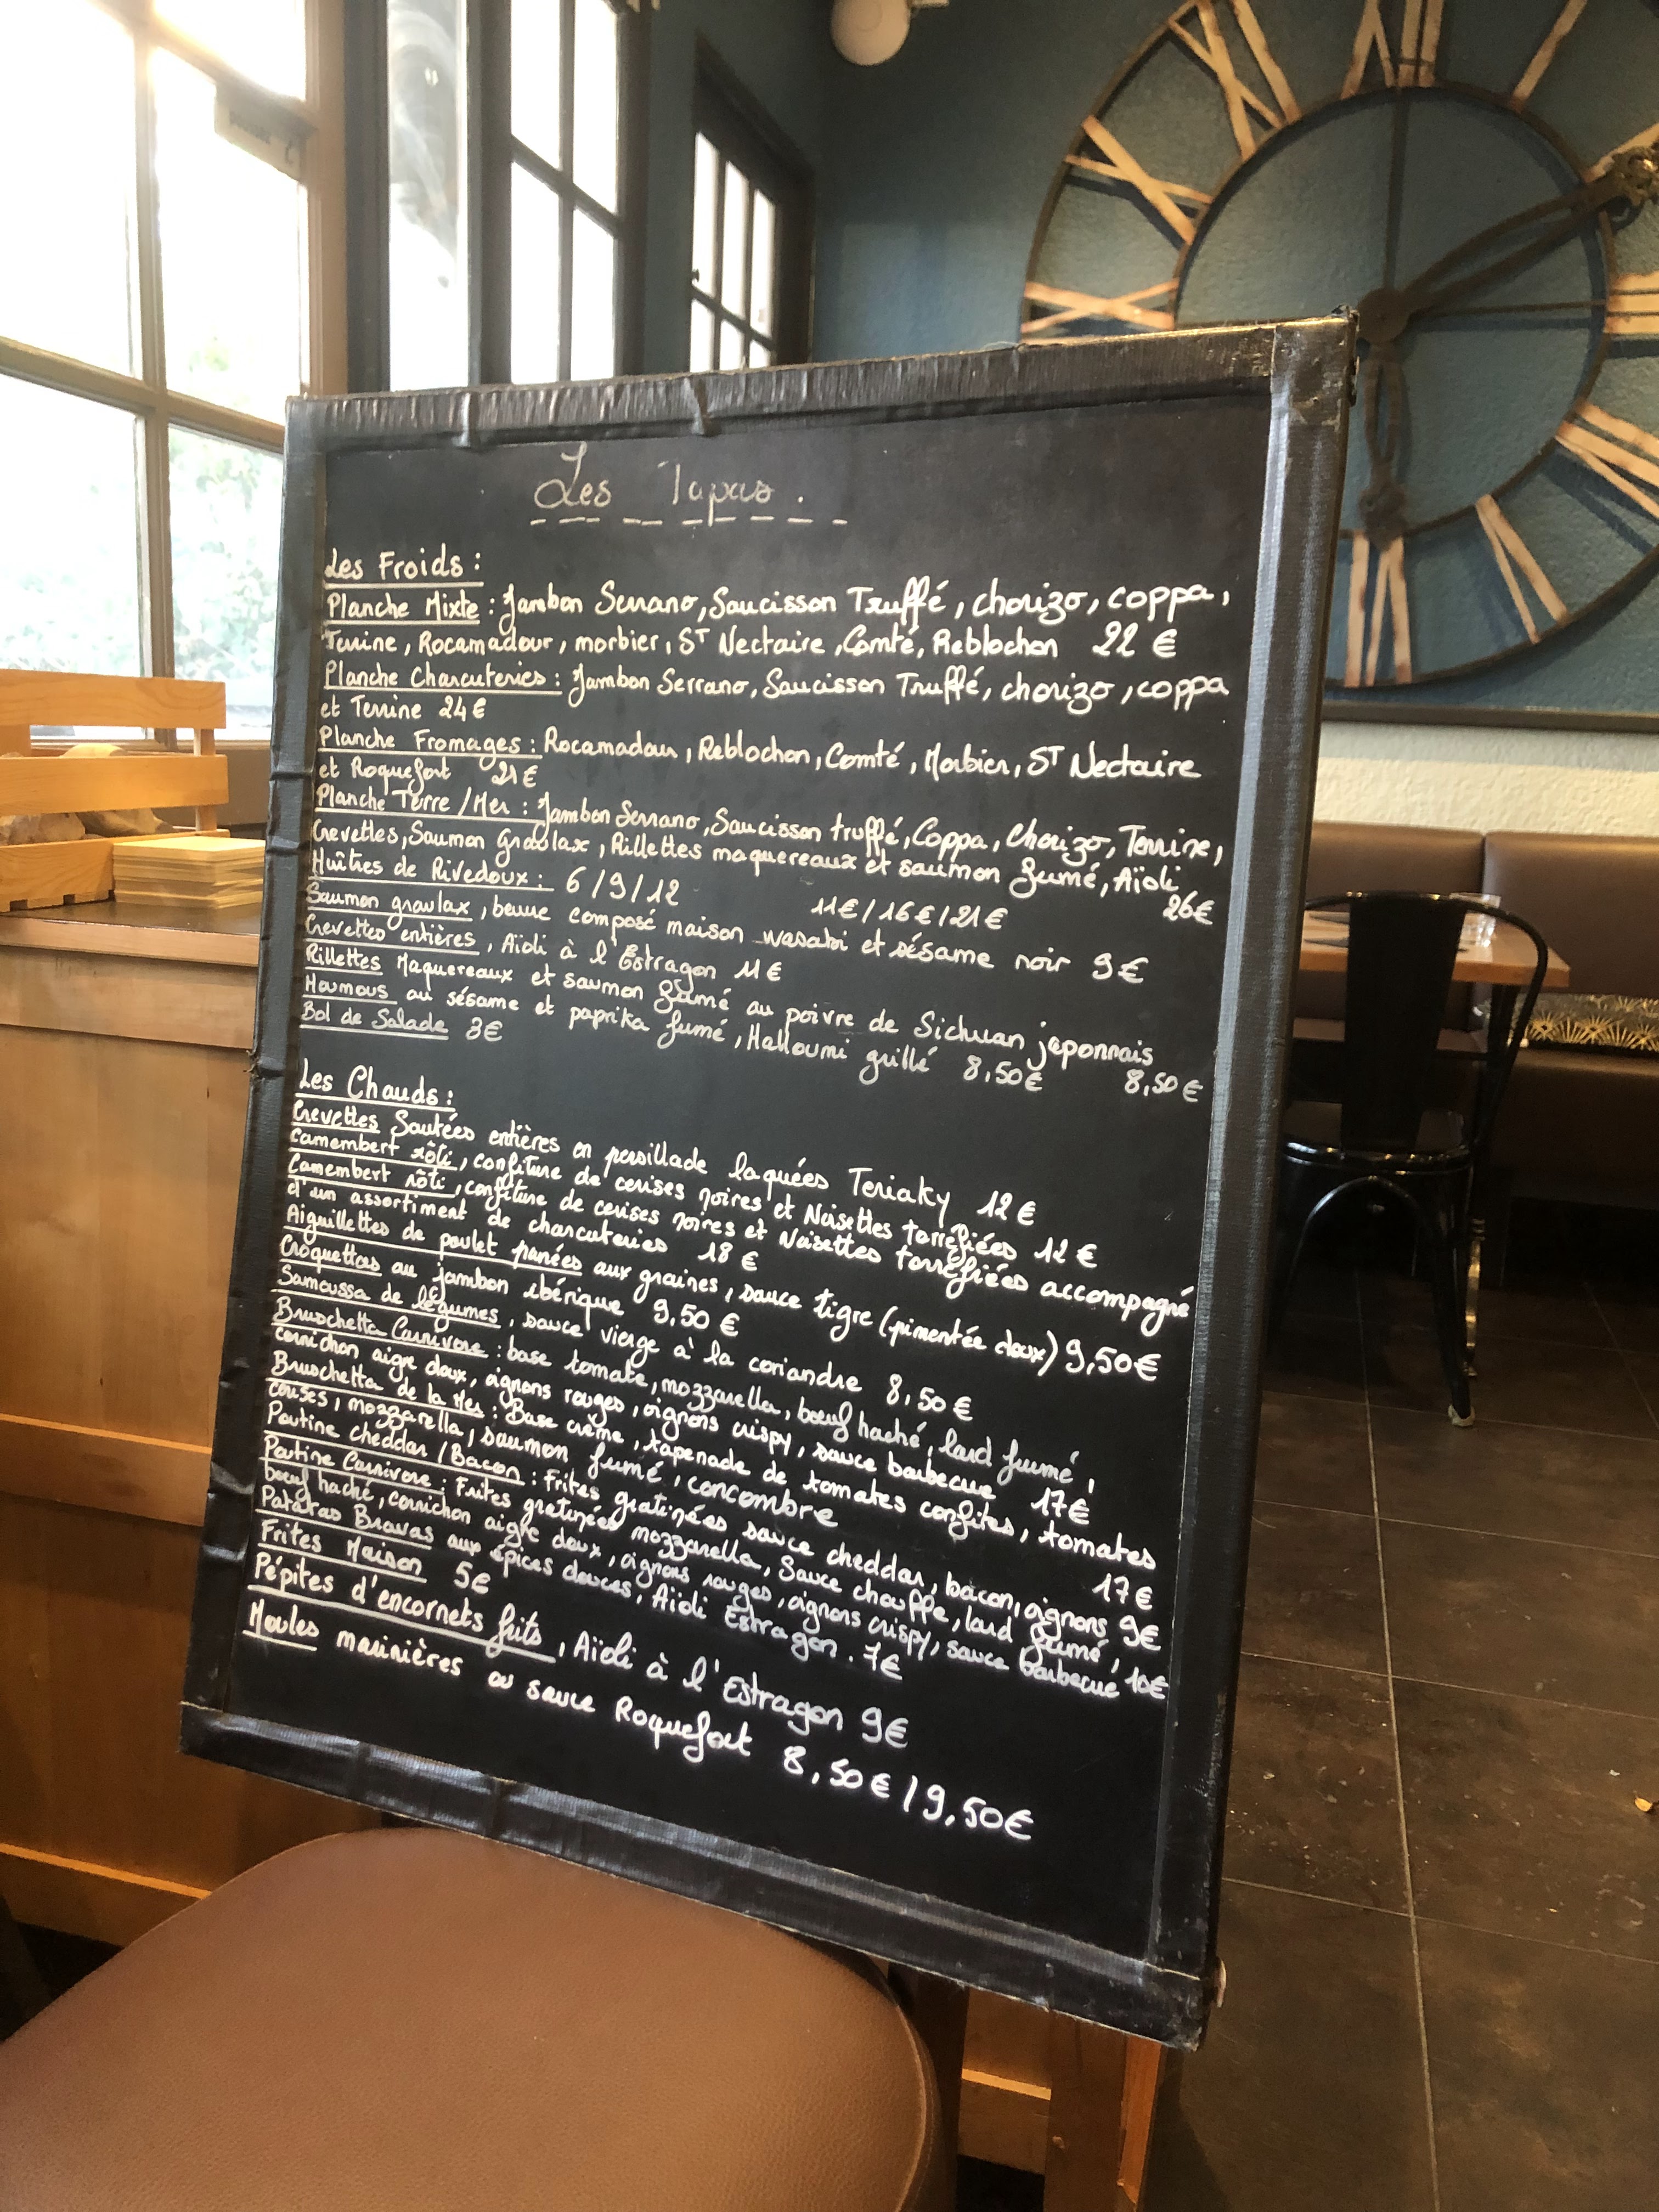 Les Tapas.
Les Froids :
Planche Mixte : Jambon Serrano, Saucisson Truffé, chorizo, coppa,
Terrine, Rocamadour, morbier, ST Nectaire, Comté, Reblochon 22 €
Planche Charcuteries : Jambon Serrano, Saucisson Truffé, chorizo, coppa
et Terrine 24 €
Planche Fromages : Rocamadour, Reblochon, Comté, Morbier, ST Nectaire
et Roquefort 21 €
Planche Terre / Mer : Jambon Serrano, Saucisson truffé, Coppa, Chorizo, Terrine,
Crevettes, Saumon gravlax, Rillettes maquereaux et saumon fumé, Aïoli
26€
Huîtres de Rivedoux : 6 / 9 / 12 11€ / 16€ / 21€
Saumon gravlax, beurre composé maison wasabi et sésame noir 9€
Crevettes entières, Aïoli à l'Estragon 11€
Rillettes Maquereaux et saumon fumé au poivre de Sichuan japonnais
8,50€
Houmous au sésame et paprika fumé, Halloumi grillé 8,50€
Bol de Salade 3€
Les Chauds :
Crevettes Sautées entières en persillade laquées Teriaky 12€
Camembert rôti, confiture de cerises noires et Noisettes torréfiées 12€
Camembert rôti, confiture de cerises noires et Noisettes torréfiées accompagné
d'un assortiment de charcuteries 18€
Aiguillettes de poulet panées aux graines, sauce tigre (pimentée doux) 9,50€
Croquettas au jambon ibérique 9,50€
Samoussa de légumes, sauce vierge à la coriandre 8,50€
Bruschetta Carnivore : base tomate, mozzarella, bœuf haché, lard fumé,
cornichon aigre doux, oignons rouges, oignons crispy, sauce barbecue 17€
Bruschetta de la Mer : Base crème, tapenade de tomates confites, tomates
cerises, mozzarella, saumon fumé, concombre 17€
Poutine cheddar / Bacon : Frites gratinées sauce cheddar, bacon, oignons 9€
Poutine Carnivore : Frites gratinées mozzarella, Sauce chauffe, lard fumé,
bœuf haché, cornichon aigre doux, oignons rouges, oignons crispy, sauce barbecue 10€
Patatas Bravas aux épices douces, Aïoli Estragon. 7€
Frites Maison 5€
Pépites d'encornets frits, Aïoli à l'Estragon 9€
Moules marinières ou sauce Roquefort 8,50€ / 9,50€